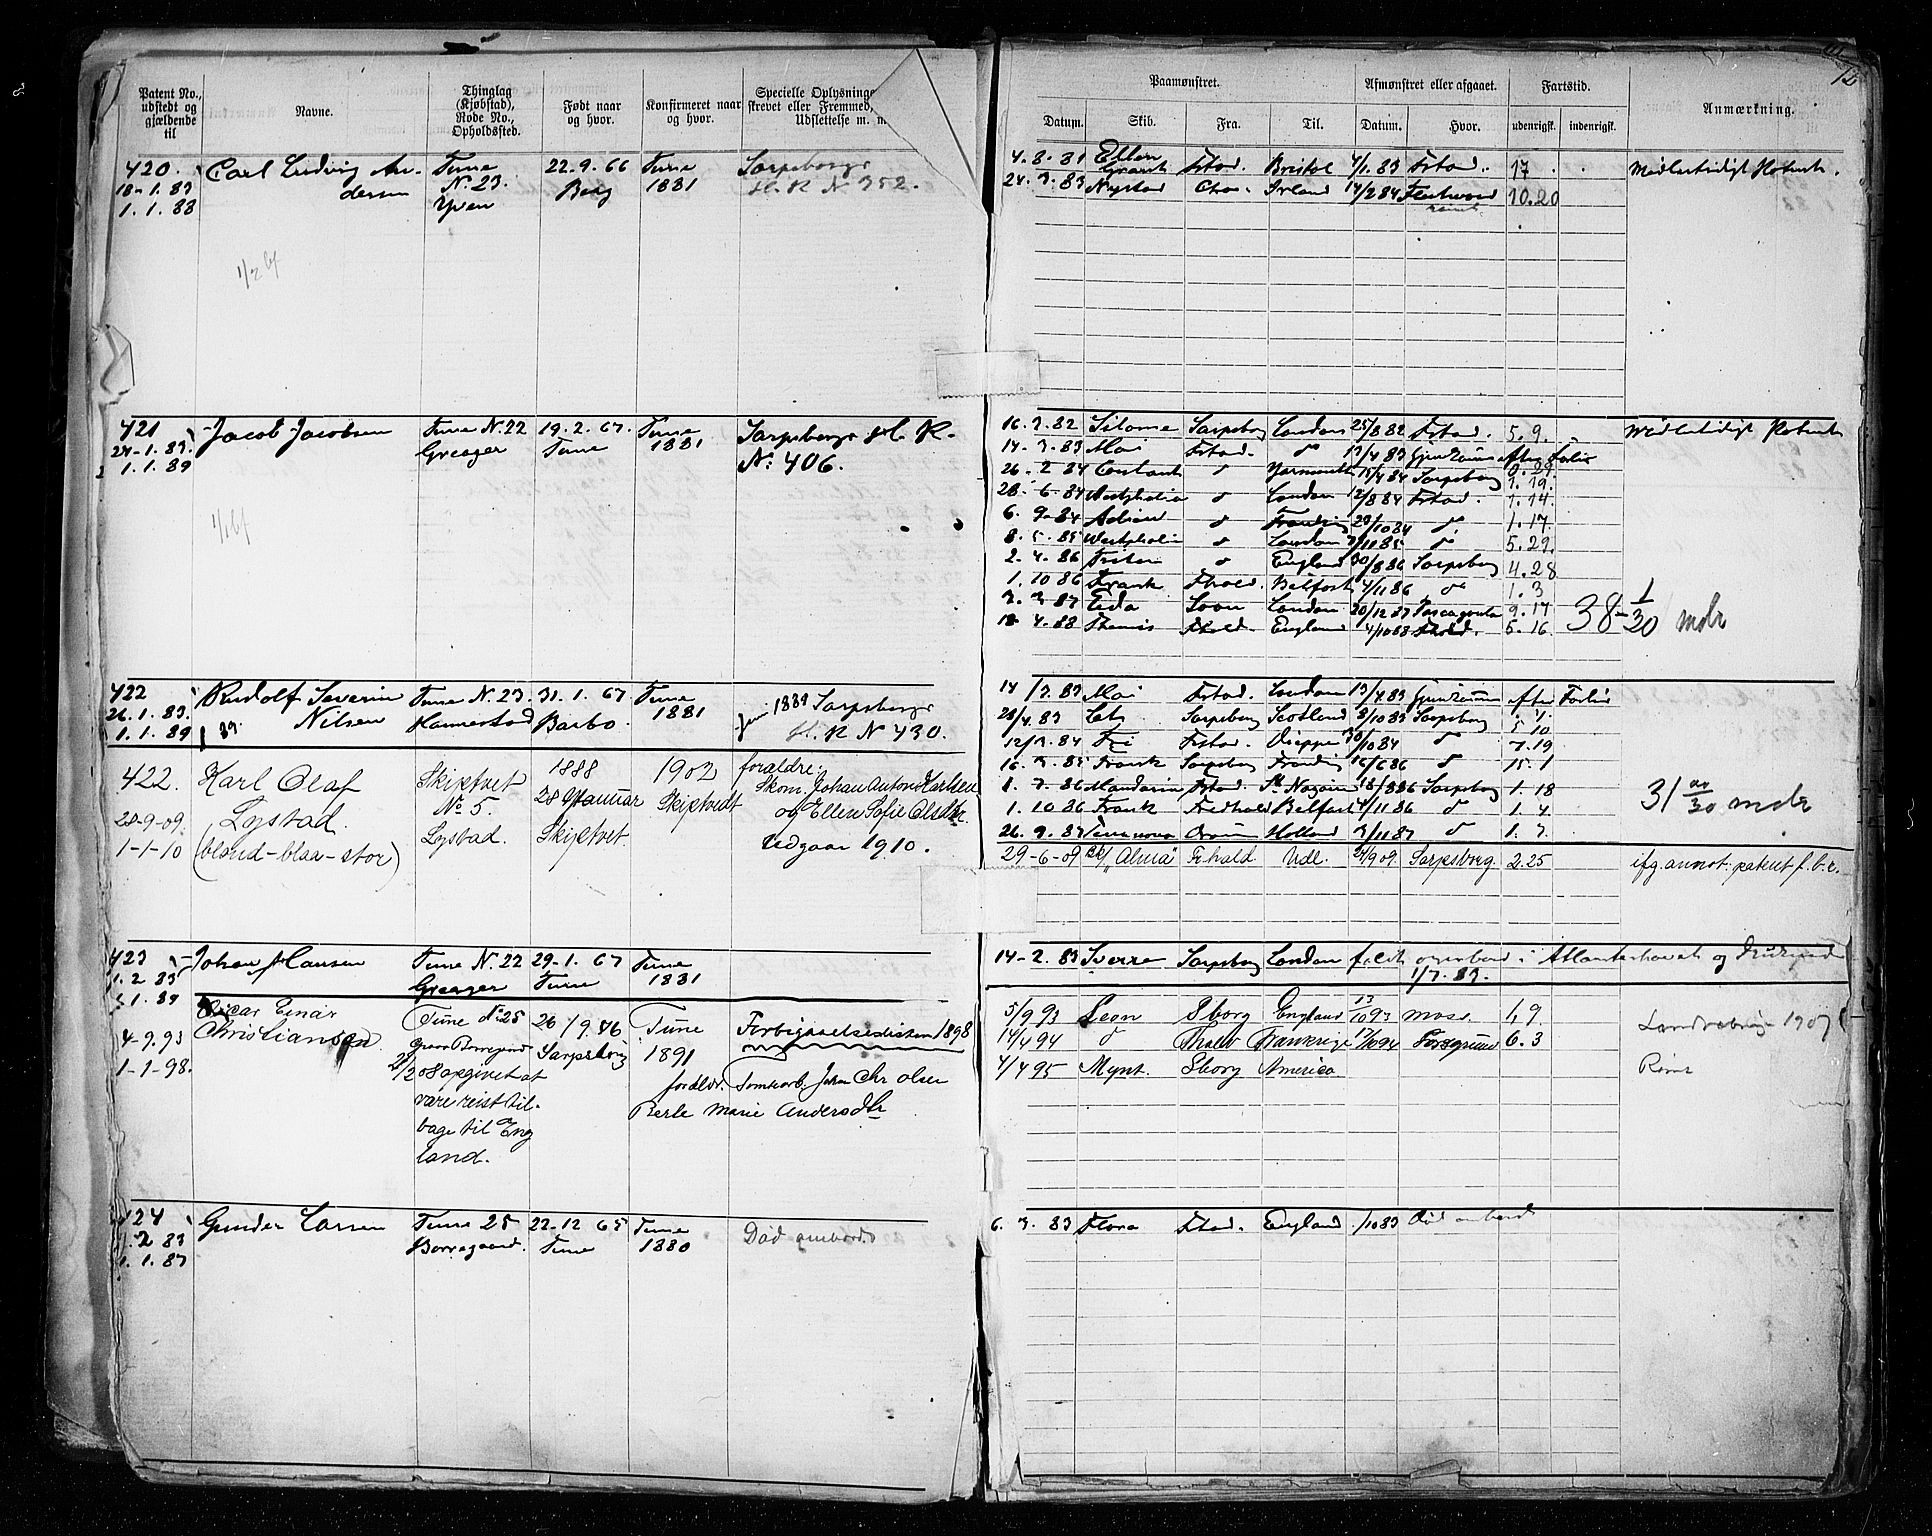 Patent No., udstedt og gjældende til
Navne.
Thinglag (Kjøbstad), Rode No., Opholdssted.
Født naar og hvor.
Konfirmeret naar og hvor.
Specielle Oplysninge
skrevet eller Fremmed,
Udslettelse m. m
Paamønstret.
Afmønstret eller afgaaet.
Fartstid.
Anmærkning.
Datum. Skib. Fra. Til. Datum. Hvor. udenrigsk. indenrigsk.
420. Carl Ludvig An- Tune 22.9.66 Tune Sarpsborgs
18-1.83 dersen N. 23. Berg 1881 H. R N 352.
1.1.88 Yven
4.8.81 Ellen Grant Fstad. Bristol 4/1.83 Fstad. 17
24.3.83 Nystad Irland 14/2 84 Fleetwood 10.20
1/2 bf
421 Jacob Jacobsen Tune N. 22 19.2.67. Tune Sarpsborgs H. R.
24-1.83. Greager Tune 1881 N: 406.
1.1.89
16.3.82 Sarpsborg London 25/8 82 Fstad. 5.9.
14.3.83 Mai Fstad. " 13/4 83 efter Forliis
26.2 84 " Yarmouth 15/4 84 Sarpsborg 1.19.
28.6.84 Westphalia " London 12/8 84 Fstad. 1.14
6.9-84 " 23/10 84 " 1.17.
8.5.85 Westphalia " London 85 " 5.29.
2.4.86 " England 30/8 86 Sarpsborg 4.28
1.10 86 Frank Fhald. Belfast 4/11 86 " 1.3
3.3 87 Eida London 20/12 87 Pascagoula 9.17
18 4.88 Fhald. England 4/10 88 Fhald. 5.16
38 1/30 mdr
422 Rudolf Severin Tune N. 23. 31.1.67. Tune 1889 Sarpsborgs
26.1.83. Nilsen Hannestad Barbo. 1881 H. R N 430.
1.1.89
14/3.83 Mai Fstad. London 13/4 83 efter Forliis
28/4.83 Sarpsborg Scotland 8/10 83 Sarpsborg 5 10
12/3.84 Fri Fstad. Dieppe 30/10 84 " 7.19
16.3.85 Frank Sarpsborg 16/6 86 " 15.1
1.7.86 Mandarin Fstad. St Nazaire 18/8 86 Sarpsborg 1.18
1.10 86 Frank Fredhald Belfast 4/11 86 " 1.4
26.9.87 Terranova Holland 3/11 87 " 1.7
31 mdr
422. Karl Olaf Skiptvet 1888 1902 forældre:
Lystad. No 5. 28 Januar Skiptvedt Skom. Johan Anton Karlsen
28-9-09. Lystad. Skiptvet og Ellen Sofie Olsdtr.
1-1-10 (blond-blaa-stor) Udgaar 1910.
29-6-09 "Alma" Fr.hald Udl. 24/9 09. Sarpsborg. 2.25 ifg. annot. patent f.b.r.
423 Johan Hansen Tune N. 22 29-1.67 Tune
1.2 83 Greager Tune 1881
14-2.83 Sverre Sarpsborg London faldt overbord i Atlanterhavet og druknede
1/7.83.
Oscar Einar Tune No 25 26/9 76 Tune Forbigaaelsesliste 1898
Christiansen Sarpsborg 1891
4-9.93
1-1-98.
opgivet at
være reist til-
bage til Eng
land.
forældr. Tomtearb. Johan Chr Olsen
Berte Marie Andersdtr
5/9 93 Leon Sborg England 13/10 93 Moss. 1,9
14/4 94 " Frankrige 17/10 94 Porsgrund 6.3
4/4 95 Mynt. Sborg America
Rømt
424 Gunder Larsen Tune 25 22-12 65 Tune Død ombord
1.2 83 Borregaard. Tune 1880
1.1.87
6.3.83 Flora Fstad. England /10 83 Død ombord